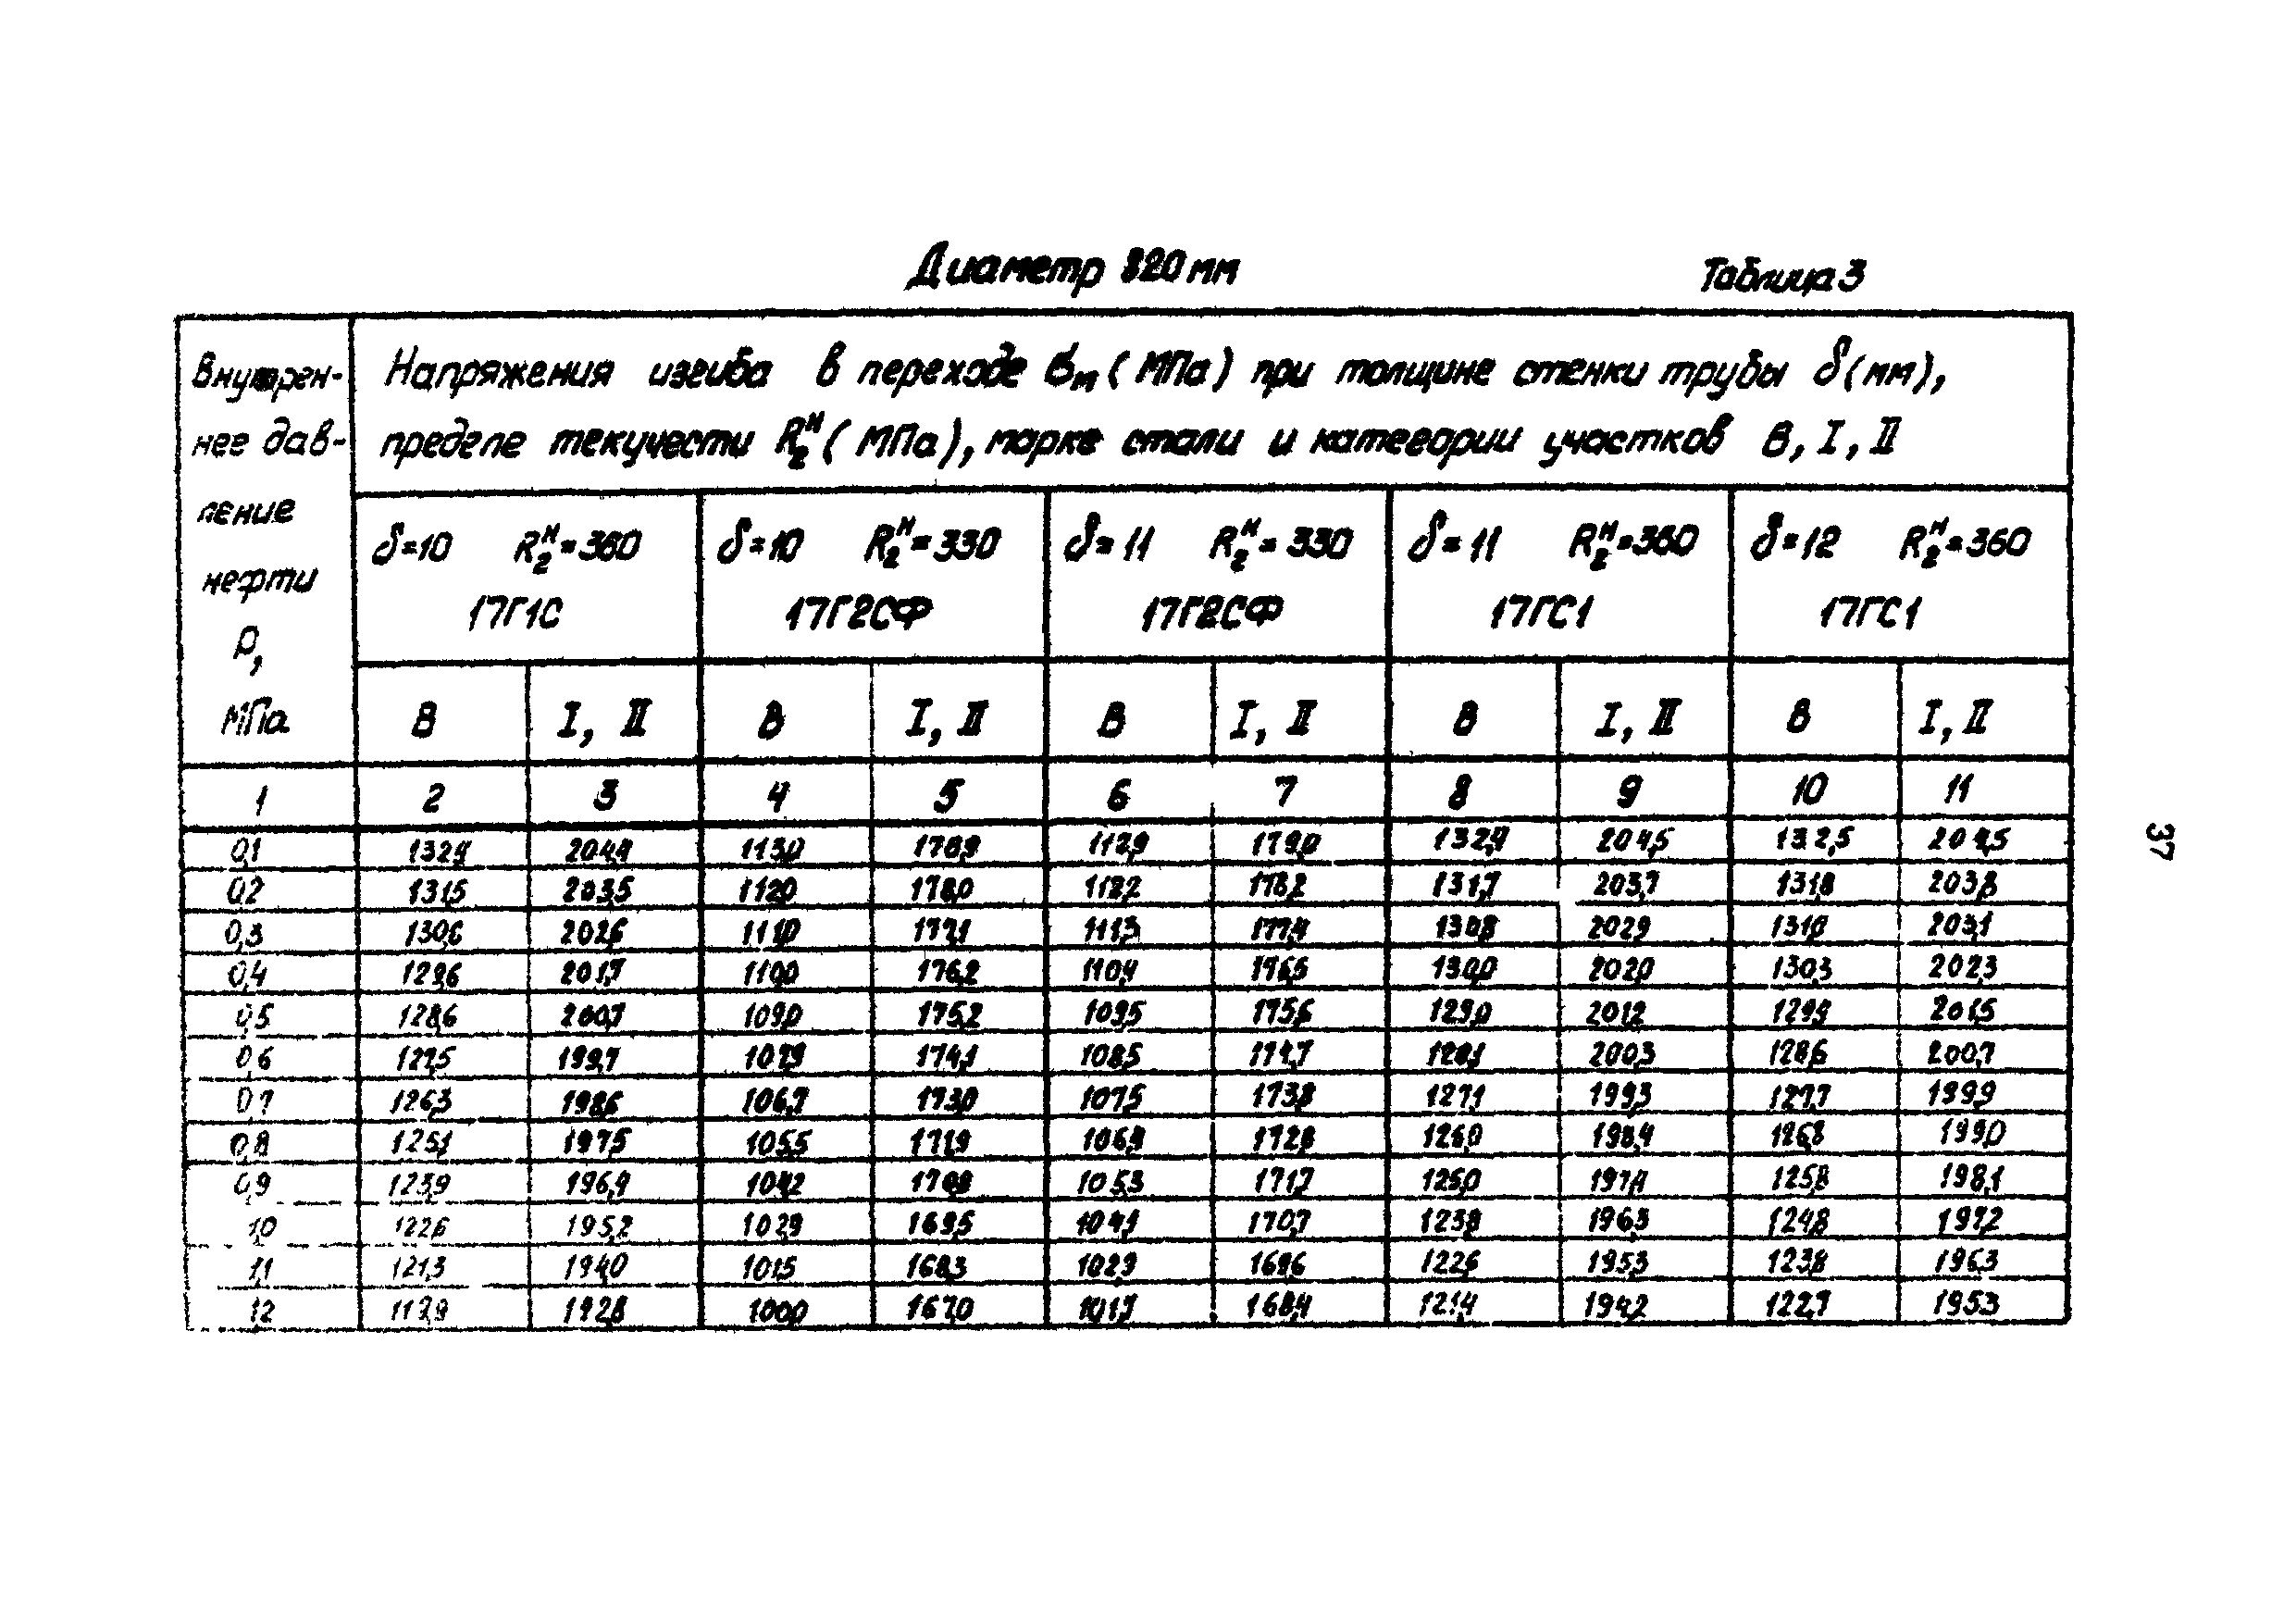 Диаметр 820 мм
Таблица 3
Внутрен-
нее дав-
ление
нефти
P,
МПа
Напряжения изгиба в переходе σм (МПа) при толщине стенки трубы δ (мм),
пределе текучести R₂ᴴ (МПа), марке стали и категории участков В, I, II
δ=10 R₂ᴴ=360 δ=10 R₂ᴴ=330 δ=11 R₂ᴴ=330 δ=11 R₂ᴴ=360 δ=12 R₂ᴴ=360
17Г1С 17Г2СФ 17Г2СФ 17ГС1 17ГС1
В I, II В I, II В I, II В I, II В I, II
1 2 3 4 5 6 7 8 9 10 11
0,1 132,4 204,4 113,0 178,9 112,9 179,0 132,4 204,5 132,5 204,5
0,2 131,5 203,5 112,0 178,0 112,2 178,2 131,7 203,7 131,8 203,8
0,3 130,6 202,6 111,0 177,1 111,3 177,4 130,8 202,9 131,0 203,1
0,4 129,6 201,7 110,0 176,2 110,4 176,5 130,0 202,0 130,3 202,3
0,5 128,6 200,7 109,0 175,2 109,5 175,6 129,0 201,2 129,4 201,5
0,6 127,5 199,7 107,9 174,1 108,5 174,7 128,1 200,3 128,6 200,7
0,7 126,3 198,6 106,7 173,0 107,5 173,8 127,1 199,3 127,7 199,9
0,8 125,1 197,5 105,5 171,9 106,4 172,8 126,0 198,4 126,8 199,0
0,9 123,9 196,4 104,2 170,8 105,3 171,7 125,0 197,4 125,8 198,1
1,0 122,6 195,2 102,9 169,5 104,1 170,7 123,8 196,3 124,8 197,2
1,1 121,3 194,0 101,5 168,3 102,9 169,6 122,6 195,3 123,8 196,3
1,2 119,9 192,8 100,0 167,0 101,7 168,4 121,4 194,2 122,7 195,3
37